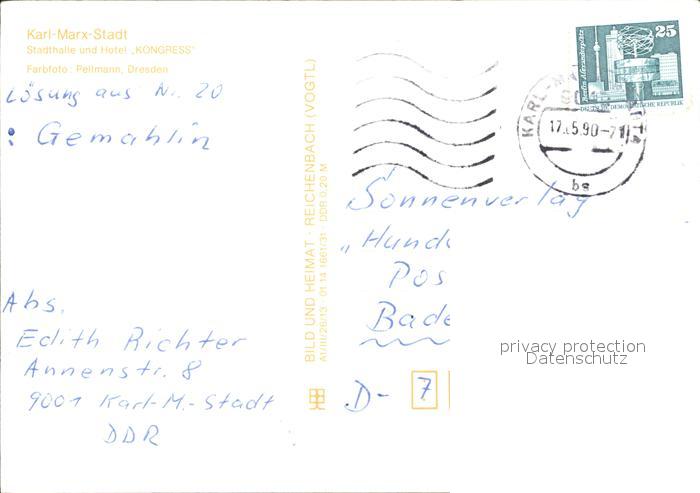 Karl-Marx-Stadt
Stadthalle und Hotel „KONGRESS"
Farbfoto: Pellmann, Dresden
Lösung aus Nr. 20
: Gemahlin
Abs.
Edith Richter
Annenstr. 8
9001 Karl-M.-Stadt
DDR
BILD UND HEIMAT · REICHENBACH (VOGTL)
A1/III/26/13 · 01 14 1661/31 · DDR 0,20 M
Berlin, Alexanderplatz
25
DEUTSCHE DEMOKRATISCHE REPUBLIK
KARL-MA
17.05.90-7
bs
Sonnenverlag
„Hund
Pos
Bade
D- 7
privacy protection
Datenschutz